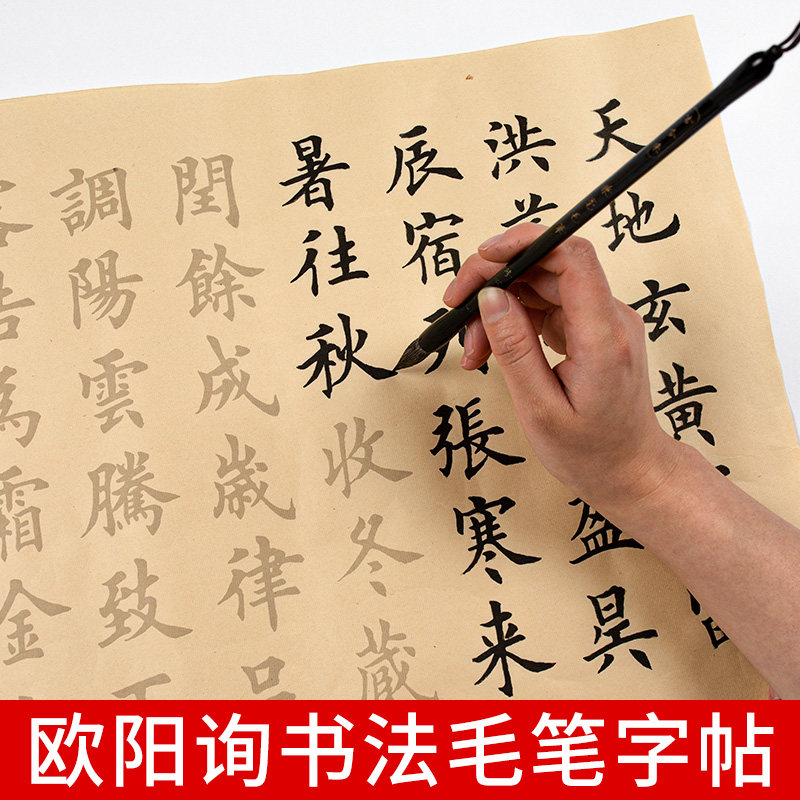 天地玄黄
洪荒盈昃
辰宿列張寒来
暑往秋收冬藏
閏餘成歲律吕
調陽雲騰致
霜金
欧阳询书法毛笔字帖